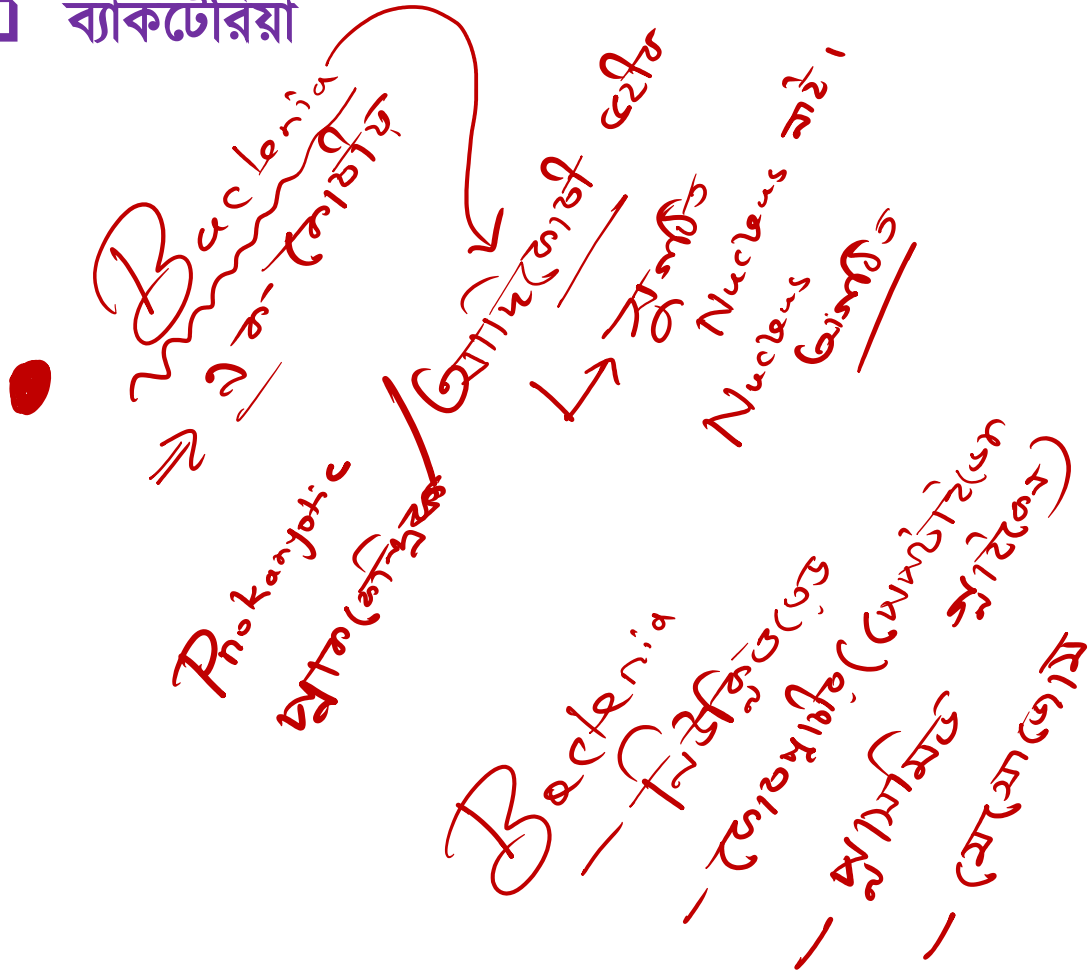 ব্যাকটেরিয়া
Bacteria
⇒ ১ কোষীয়
আদিকোষী জীব
সুগঠিত Nucleus নাই।
Nucleus
Prokaryotic
প্রাককেন্দ্রিক
Bacteria
- নিউক্লিওয়েড
- কোষপ্রাচীর (পেপটাইডো
গ্লাইকেন)
- প্লাসমিড
- মেসোজোম